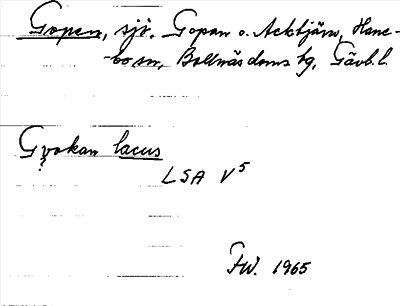 Gopen, sjö. Gopan o. Acktjärn, Hane-
bo sn, Bollnäs doms hg, Gävb. l.
Gvokan lacus
?
LSA V5
FW. 1965